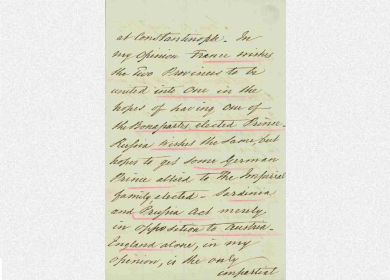 at Constantinople. In
my opinion France wishes
the Two Provinces to be
united into One in the
hopes of having One of
the Bonapartes elected Prince.
Russia wishes the same, but
hopes to get some German
Prince allied to the Imperial
family elected - Sardinia
and Prussia Act merely
in opposition to Austria -
England alone, in my
opinion, is the only
impartial